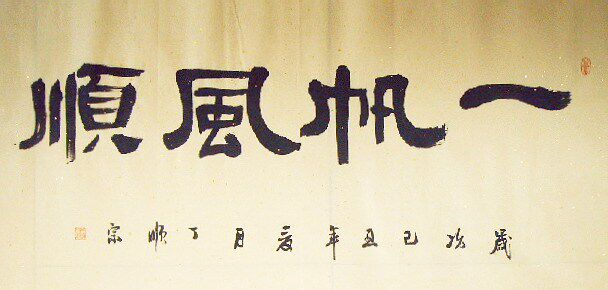 一帆風順
歲於己丑年夏月丁順宗